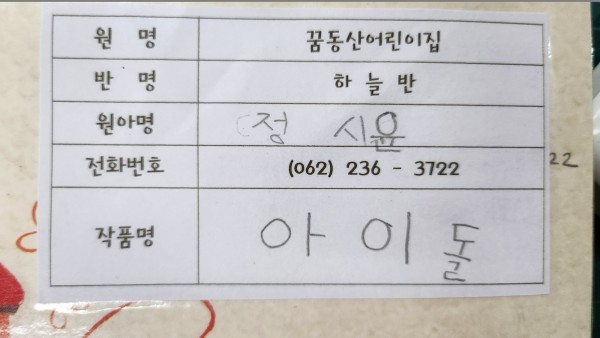 원 명 꿈동산어린이집
반 명 하 늘 반
원아명 정 시윤
전화번호 (062) 236 - 3722
22
작품명 아 이 돌